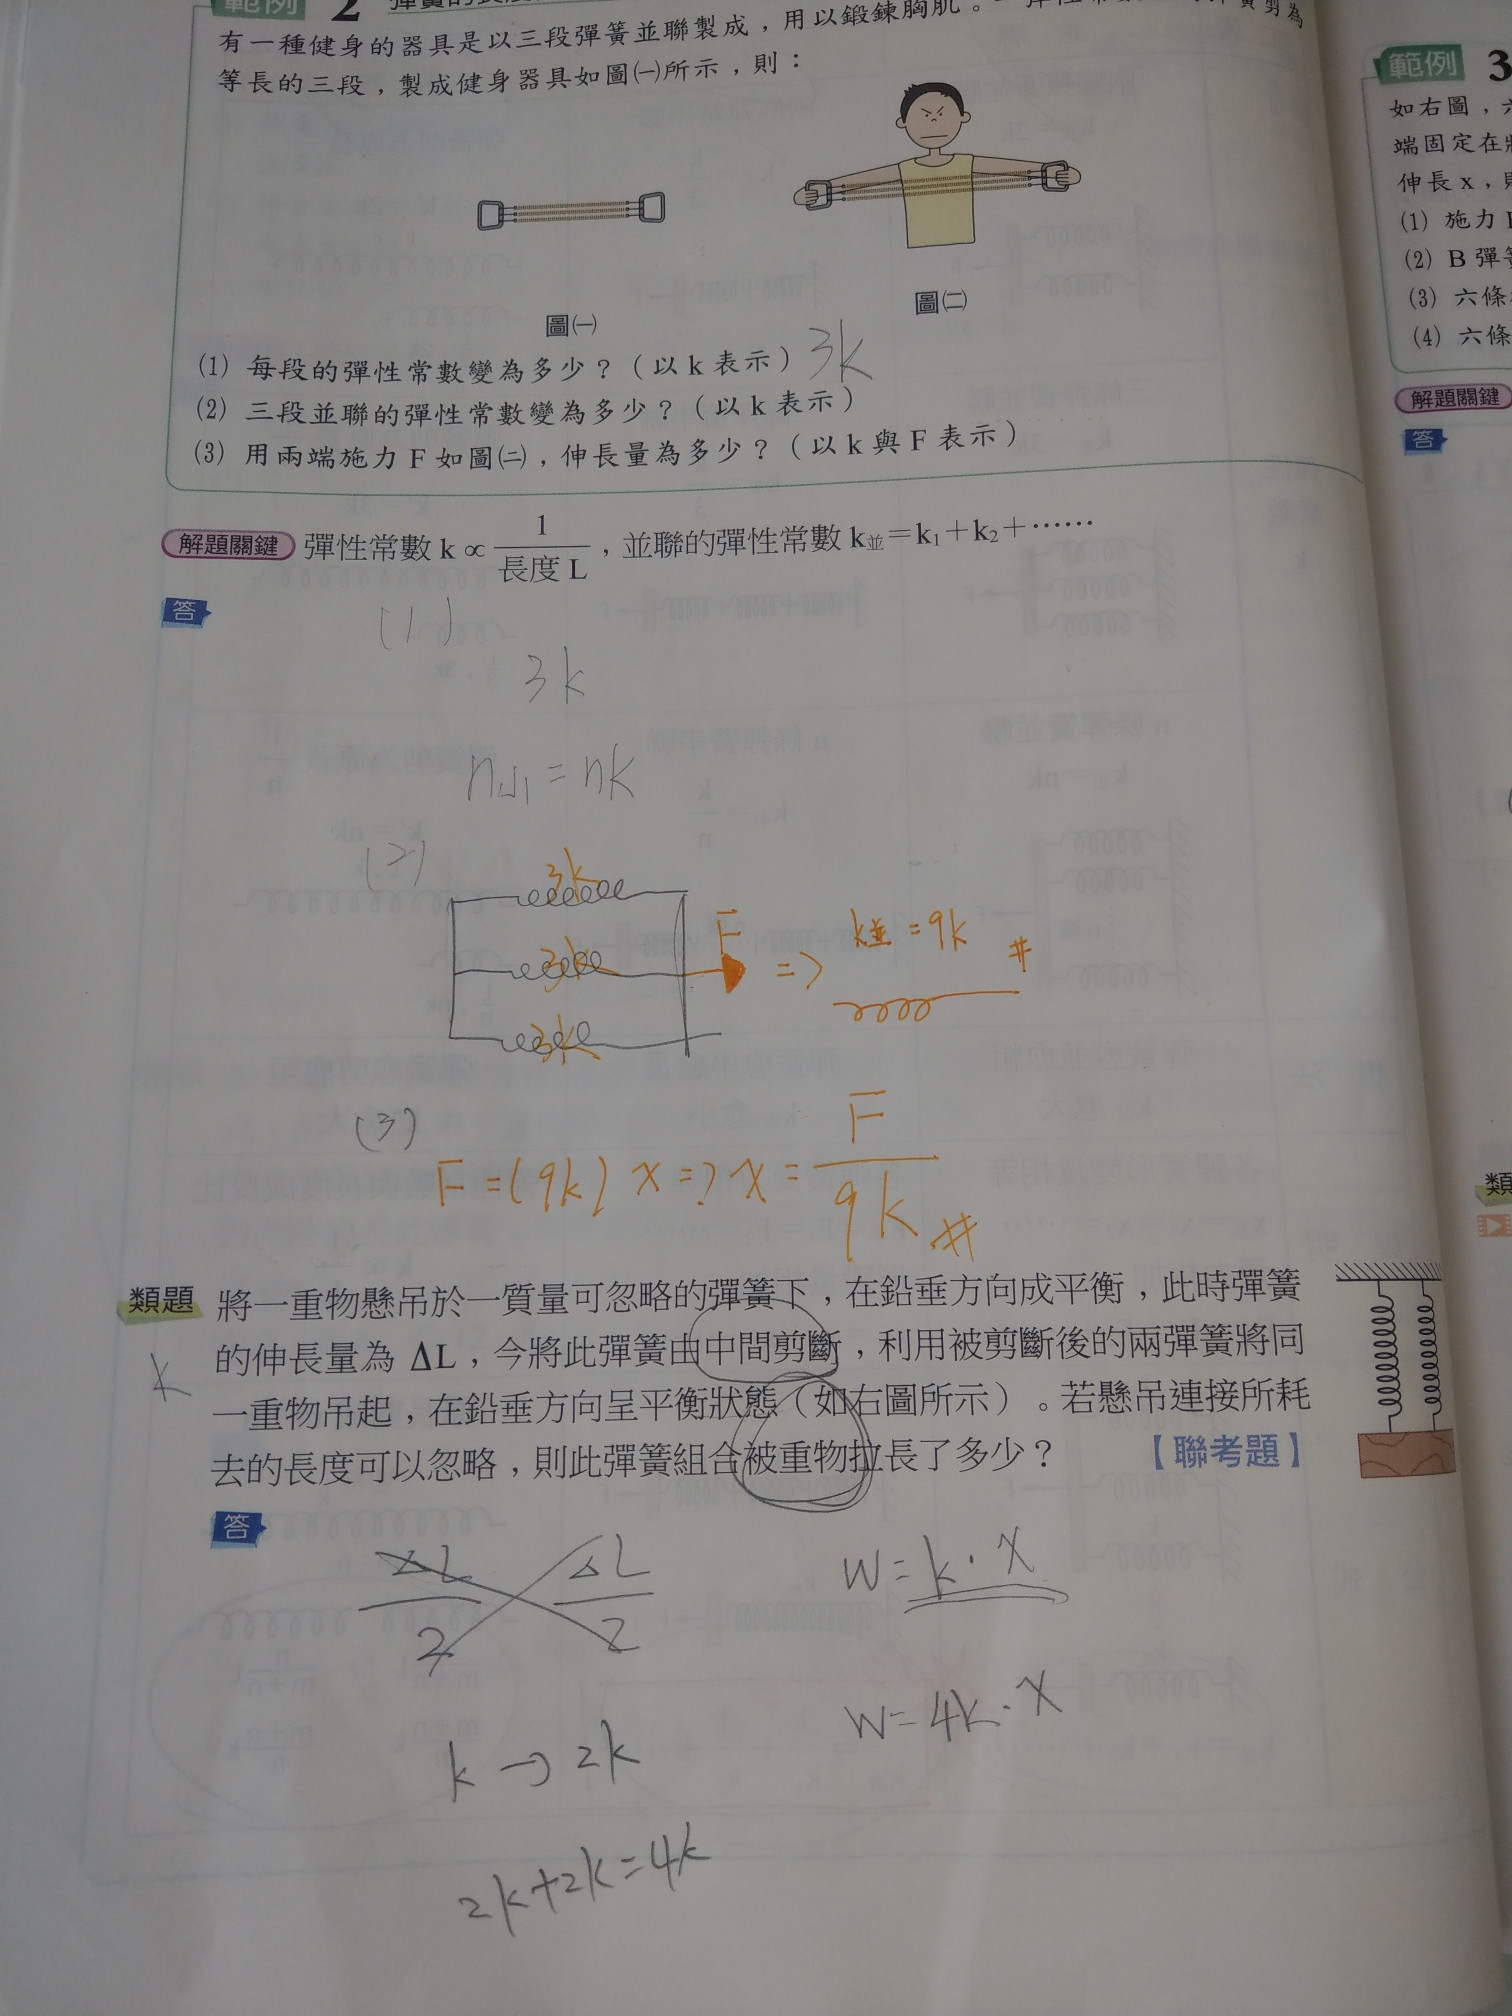 範例 2
有一種健身的器具是以三段彈簧並聯製成，用以鍛鍊胸肌。
等長的三段，製成健身器具如圖㈠所示，則：
圖㈠
圖㈡
(1) 每段的彈性常數變為多少？（以 k 表示） 3k
(2) 三段並聯的彈性常數變為多少？（以 k 表示）
(3) 用兩端施力 F 如圖㈡，伸長量為多少？（以 k 與 F 表示）
解題關鍵 彈性常數 k ∝ 1/長度 L，並聯的彈性常數 k並＝k₁＋k₂＋⋯⋯
答
(1)
3k
= nk
(2)
3k
3k
3k
F
=> k並 = 9k #
(3)
F = (9k) x => x = F/9k #
類題 將一重物懸吊於一質量可忽略的彈簧下，在鉛垂方向成平衡，此時彈簧
的伸長量為 ΔL，今將此彈簧由中間剪斷，利用被剪斷後的兩彈簧將同
k
一重物吊起，在鉛垂方向呈平衡狀態（如右圖所示）。若懸吊連接所耗
去的長度可以忽略，則此彈簧組合被重物拉長了多少？ 【聯考題】
答
ΔL/2 ΔL/2
W = k · X
W = 4k · X
k → 2k
2k+2k=4k
範例 3
如右圖，
端固定在
伸長 x，
(1) 施力
(2) B 彈
(3) 六條
(4) 六條
解題關鍵
答
類